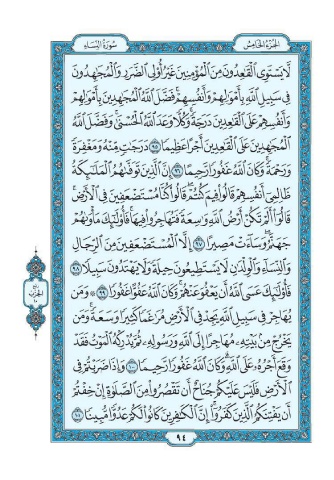 الجزء الخامس
سورة النساء
لَّا يَسْتَوِى ٱلْقَٰعِدُونَ مِنَ ٱلْمُؤْمِنِينَ غَيْرُ أُو۟لِى ٱلضَّرَرِ وَٱلْمُجَٰهِدُونَ
فِى سَبِيلِ ٱللَّهِ بِأَمْوَٰلِهِمْ وَأَنفُسِهِمْ ۚ فَضَّلَ ٱللَّهُ ٱلْمُجَٰهِدِينَ بِأَمْوَٰلِهِمْ
وَأَنفُسِهِمْ عَلَى ٱلْقَٰعِدِينَ دَرَجَةً ۚ وَكُلًّا وَعَدَ ٱللَّهُ ٱلْحُسْنَىٰ ۚ وَفَضَّلَ ٱللَّهُ
ٱلْمُجَٰهِدِينَ عَلَى ٱلْقَٰعِدِينَ أَجْرًا عَظِيمًا ٩٥ دَرَجَٰتٍ مِّنْهُ وَمَغْفِرَةً
وَرَحْمَةً ۚ وَكَانَ ٱللَّهُ غَفُورًا رَّحِيمًا ٩٦ إِنَّ ٱلَّذِينَ تَوَفَّىٰهُمُ ٱلْمَلَٰٓئِكَةُ
ظَالِمِىٓ أَنفُسِهِمْ قَالُوا۟ فِيمَ كُنتُمْ ۖ قَالُوا۟ كُنَّا مُسْتَضْعَفِينَ فِى ٱلْأَرْضِ ۚ
قَالُوٓا۟ أَلَمْ تَكُنْ أَرْضُ ٱللَّهِ وَٰسِعَةً فَتُهَاجِرُوا۟ فِيهَا ۚ فَأُو۟لَٰٓئِكَ مَأْوَىٰهُمْ
جَهَنَّمُ ۖ وَسَآءَتْ مَصِيرًا ٩٧ إِلَّا ٱلْمُسْتَضْعَفِينَ مِنَ ٱلرِّجَالِ
وَٱلنِّسَآءِ وَٱلْوِلْدَٰنِ لَا يَسْتَطِيعُونَ حِيلَةً وَلَا يَهْتَدُونَ سَبِيلًا ٩٨
فَأُو۟لَٰٓئِكَ عَسَى ٱللَّهُ أَن يَعْفُوَ عَنْهُمْ ۚ وَكَانَ ٱللَّهُ عَفُوًّا غَفُورًا ٩٩ ۞ وَمَن
يُهَاجِرْ فِى سَبِيلِ ٱللَّهِ يَجِدْ فِى ٱلْأَرْضِ مُرَٰغَمًا كَثِيرًا وَسَعَةً ۚ وَمَن
يَخْرُجْ مِنۢ بَيْتِهِۦ مُهَاجِرًا إِلَى ٱللَّهِ وَرَسُولِهِۦ ثُمَّ يُدْرِكْهُ ٱلْمَوْتُ فَقَدْ
وَقَعَ أَجْرُهُۥ عَلَى ٱللَّهِ ۗ وَكَانَ ٱللَّهُ غَفُورًا رَّحِيمًا ١٠٠ وَإِذَا ضَرَبْتُمْ فِى
ٱلْأَرْضِ فَلَيْسَ عَلَيْكُمْ جُنَاحٌ أَن تَقْصُرُوا۟ مِنَ ٱلصَّلَوٰةِ إِنْ خِفْتُمْ
أَن يَفْتِنَكُمُ ٱلَّذِينَ كَفَرُوٓا۟ ۚ إِنَّ ٱلْكَٰفِرِينَ كَانُوا۟ لَكُمْ عَدُوًّا مُّبِينًا ١٠١
ربع
الحزب
٩٤